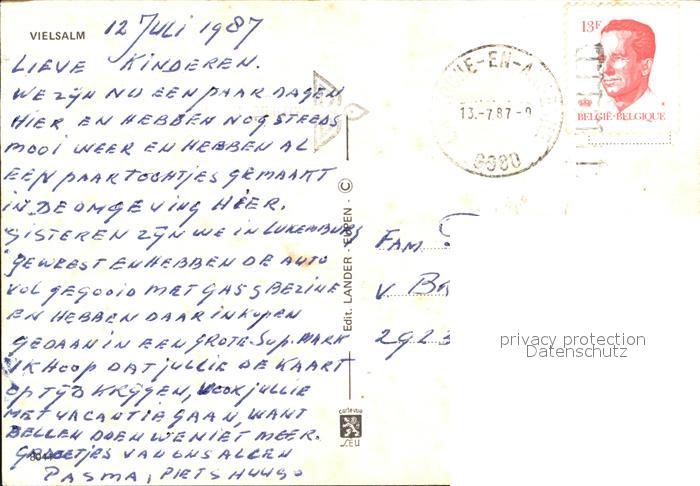 VIELSALM
12 JULI 1987
LIEVE KINDEREN.
WE ZIJN NU EEN PAAR DAGEN
HIER EN HEBBEN NOG STEEDS
MOOI WEER EN HEBBEN AL
EEN PAAR TOCHTJES GEMAAKT
IN DE OMGEVING HIER.
GISTEREN ZIJN WE IN LUXEMBURG
GEWEEST EN HEBBEN DE AUTO
VOL GEGOOID MET GAS BEZINE
EN HEBBEN DAAR INKOPEN
GEDAAN IN EEN GROTE SUP. MARK
IK HOOP DAT JULLIE DE KAART
OP TIJD KRIJGEN, VOOR JULLIE
MET VACANTIE GAAN, WANT
BELLEN DOEN WE NIET MEER.
GROETJES VAN ONS ALLEN
PASMA, PIET
Edit. LANDER - EUPEN - ©
carte-vue
13.-7.87-
13F
BELGIË-BELGIQUE
FAM
V
2923
privacy protection
Datenschutz